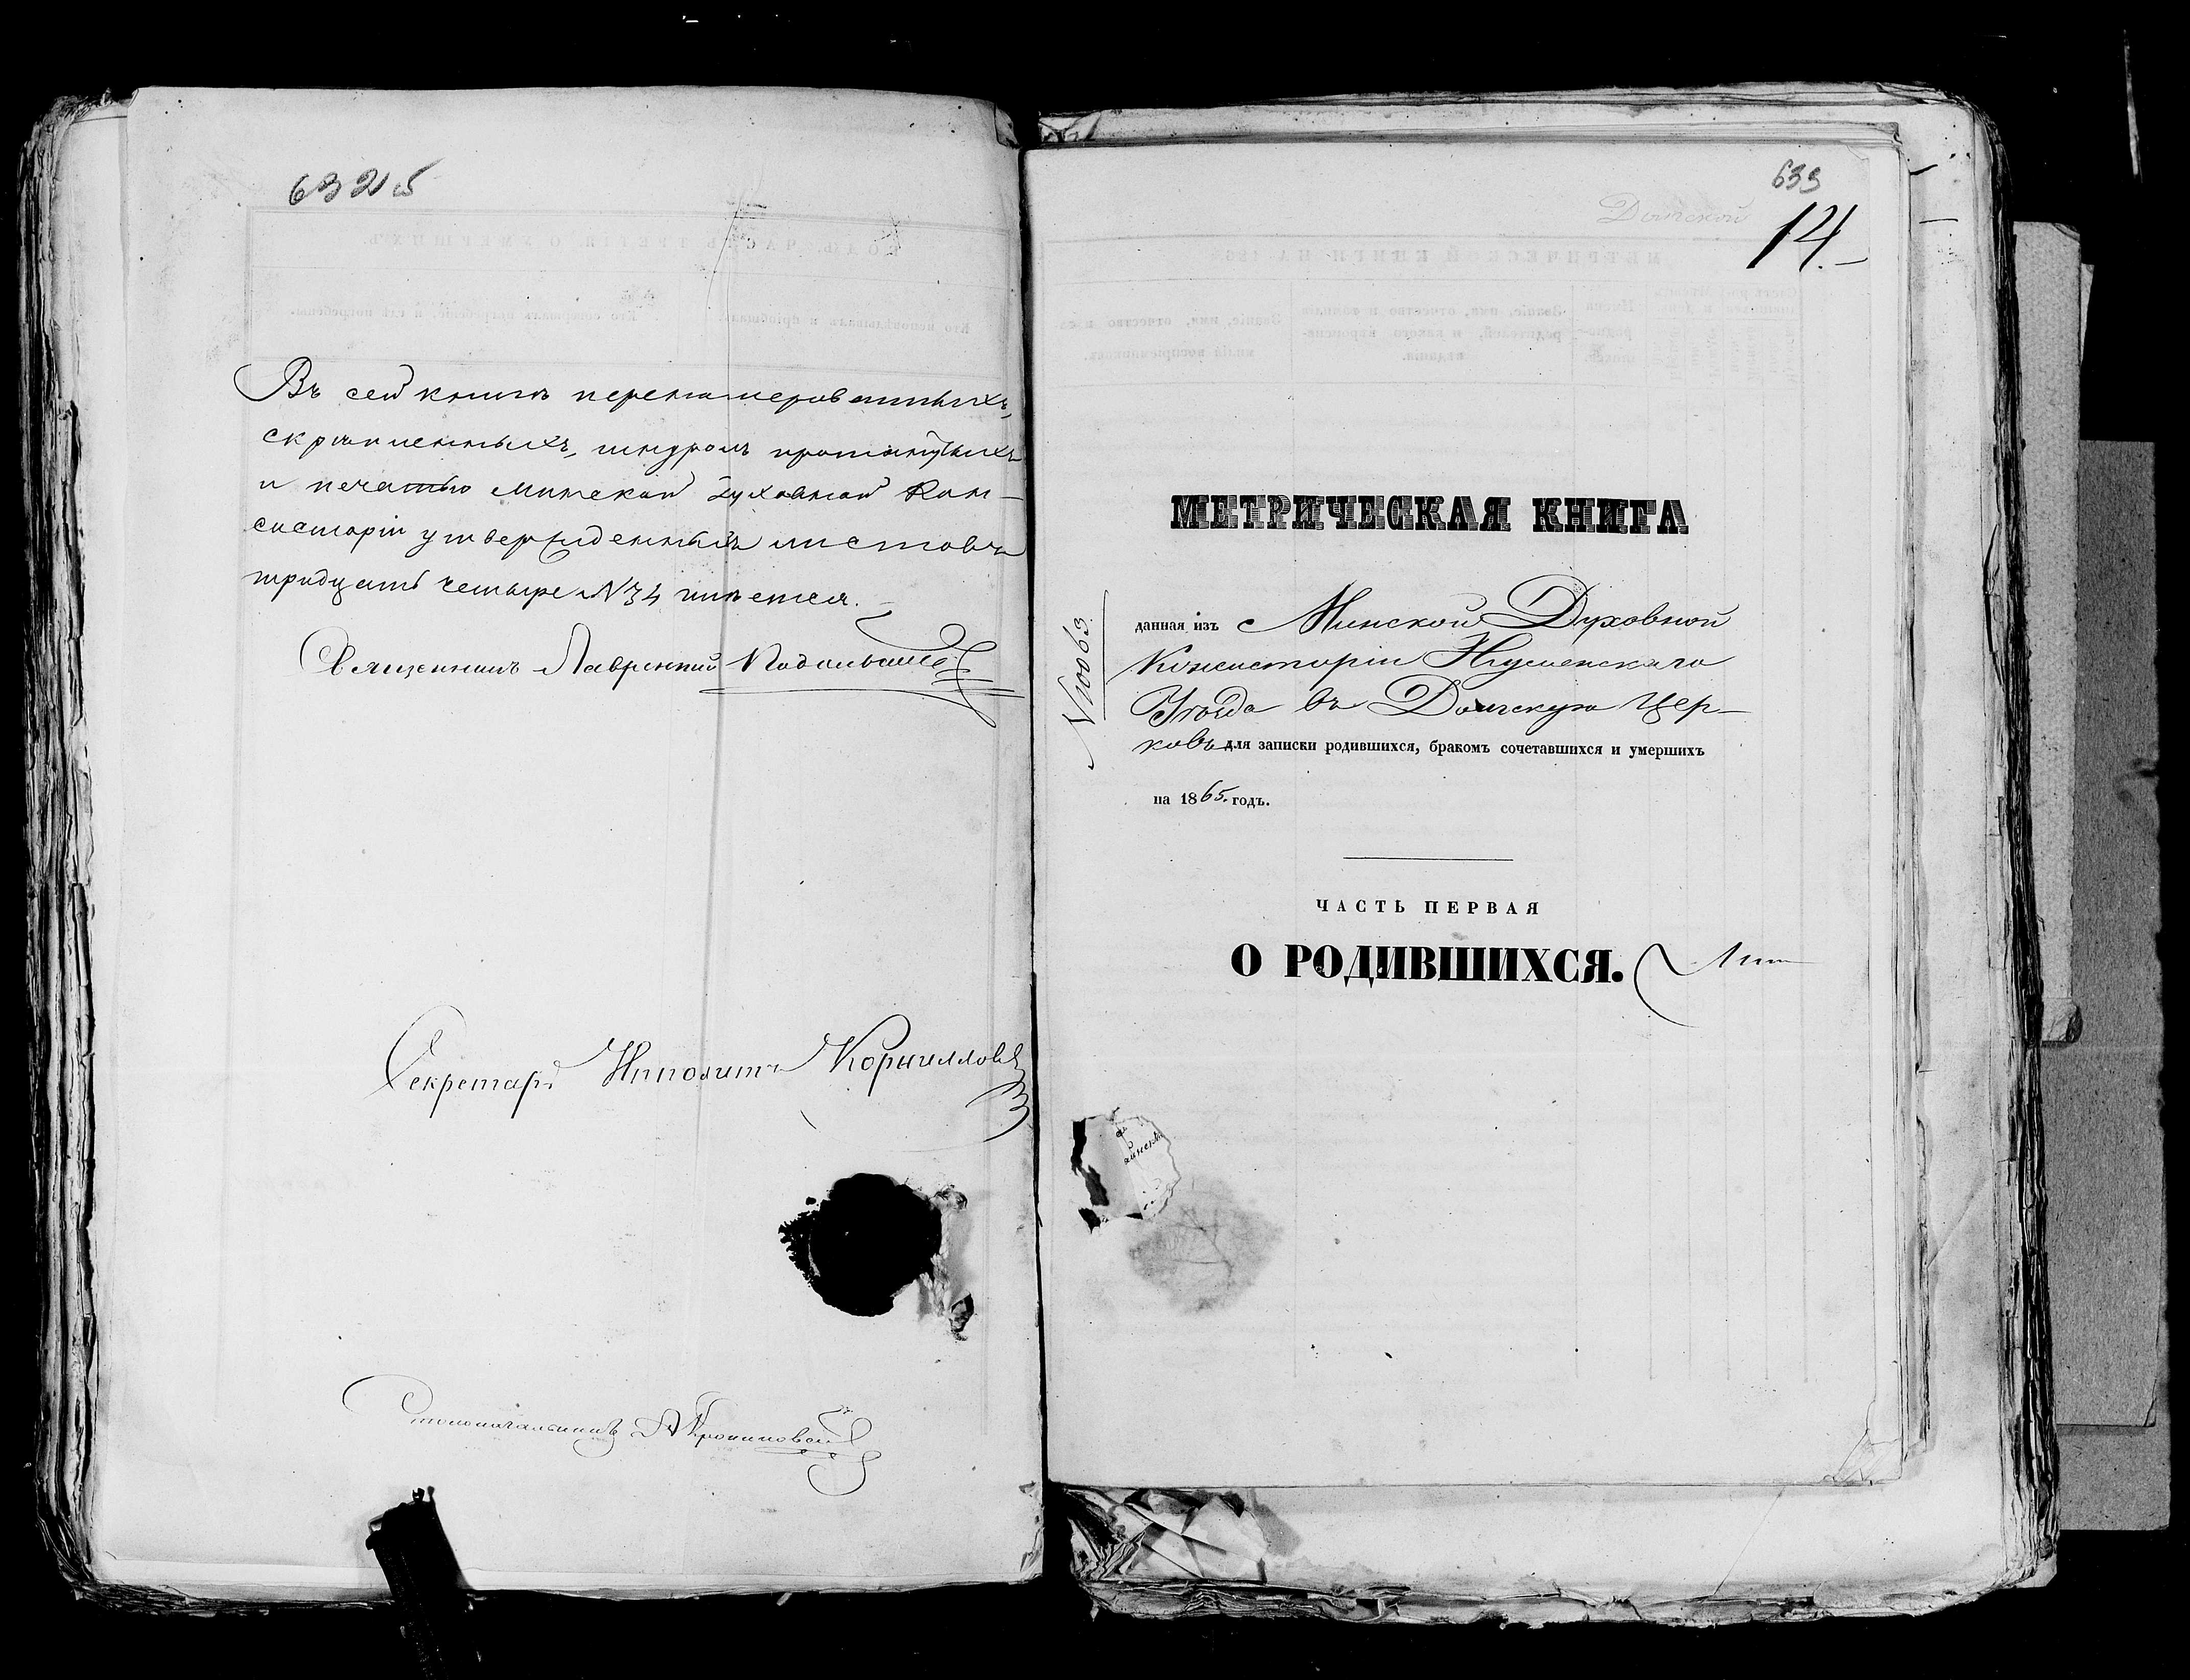 632 об
Въ сей книгѣ перенумерованныхъ,
скрѣпленныхъ, шнуромъ протянутыхъ
и печатью Минской Духовной Кон-
систоріи утвержденныхъ листовъ
тридцать четыре №34 имѣется.
Священникъ Лаврентій
Секретарь Ипполитъ Корниллов
Столоначальникъ
633
14.
МЕТРИЧЕСКАЯ КНИГА
данная изъ Минской Духовной
Консисторіи Игуменскаго
Уѣзда въ Цер-
ковь для записки родившихся, бракомъ сочетавшихся и умершихъ
на 1865. годъ.
N10063.
ЧАСТЬ ПЕРВАЯ
О РОДИВШИХСЯ.